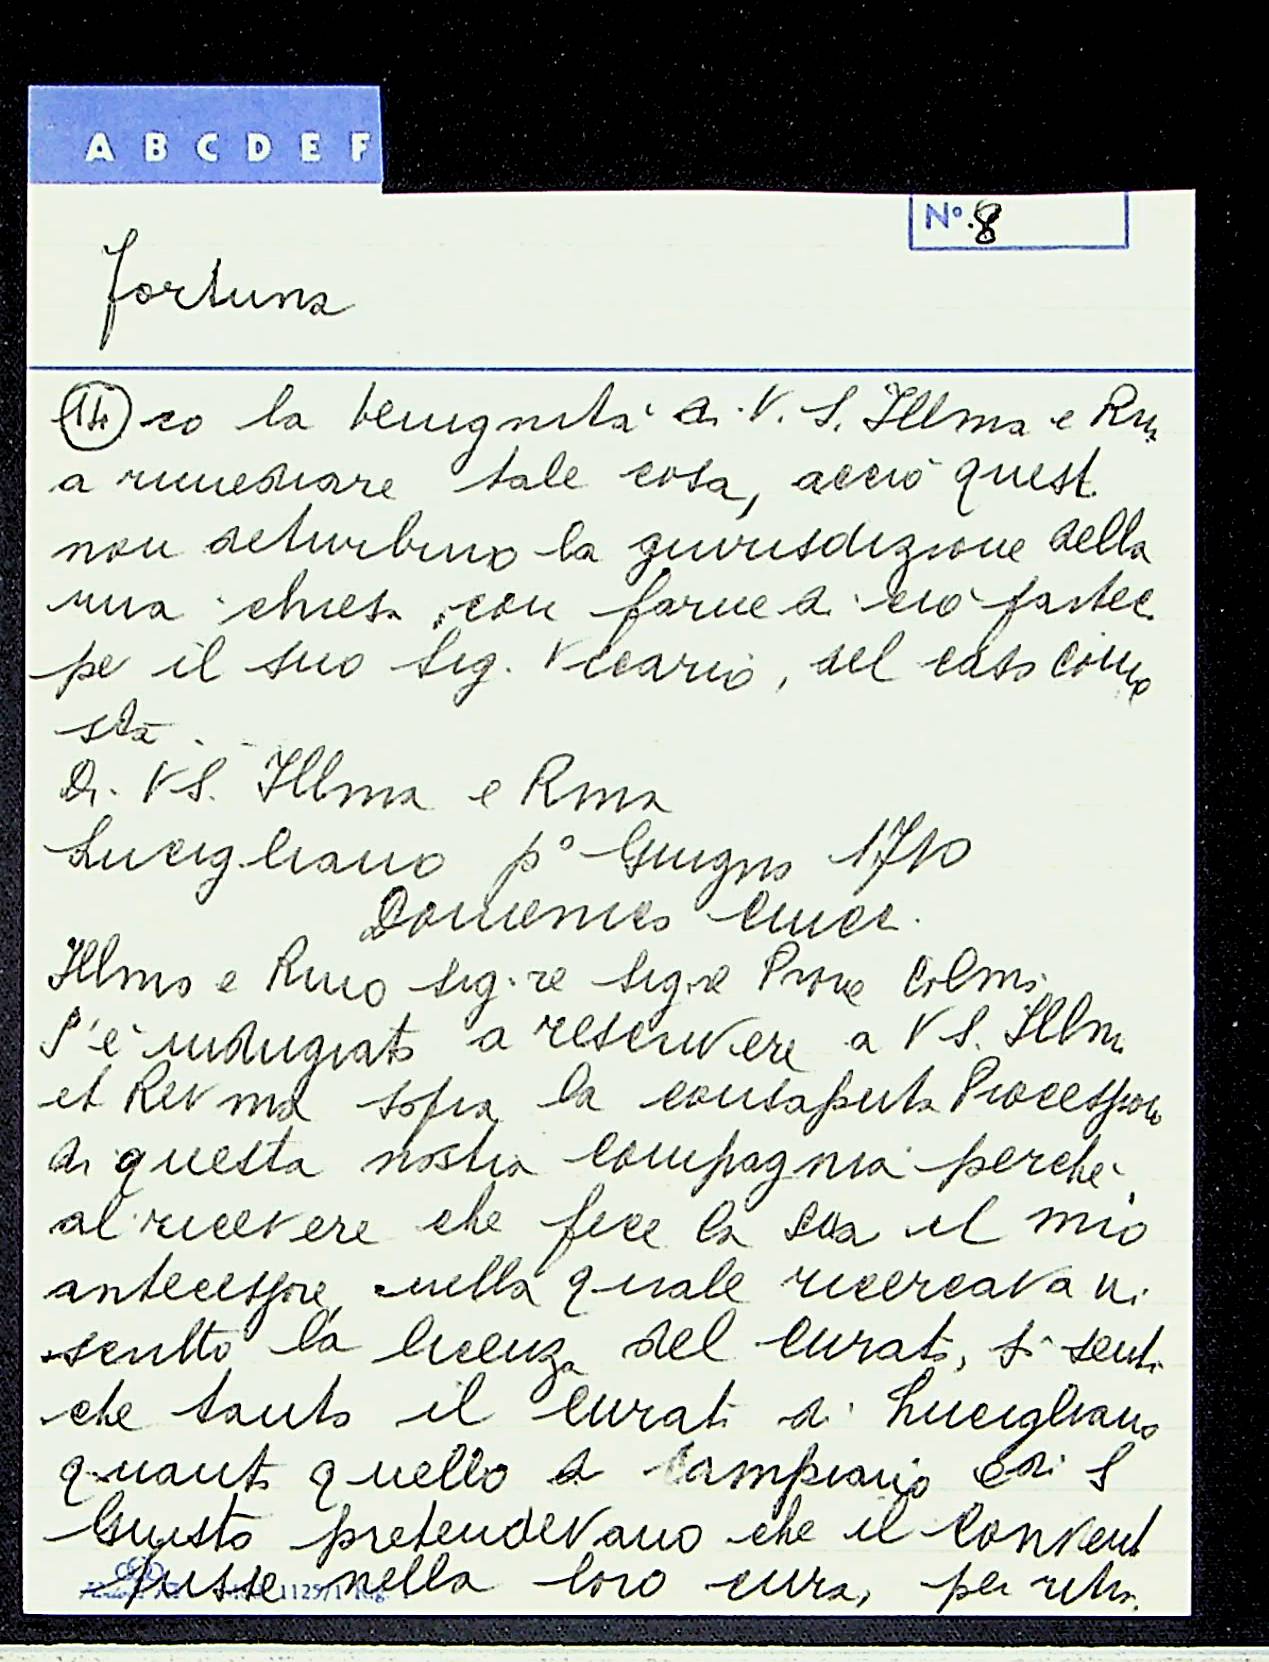 A B C D E F
N° 8
Fortuna
14 co la benignità di V. S. Illma e Rma
a rimediare tale cosa, acciò quest
non deturbino la giurisdizione della
mia chiesa con farne di ciò partec
pe il suo Sig. Vicario, del caso come
stà.
Di VS. Illma e Rma
Lucigliano p° Giugno 1710
Domenico
Illmo e Rmo sig.re sig.re Prone Colmo
S'è indugiato a rescrivere a VS. Illma
et Revma sopra la consaputa Processione
di questa nostra Compagnia perchè
al ricevere che fece la sua il mio
antecessore, nella quale ricercava in
scritto la licenza del Curato, si sentì
che tanto il Curato di Lucigliano
quanto quello di Campiano e di S
Giusto pretendevano che il Convent
fusse nella loro cura, per